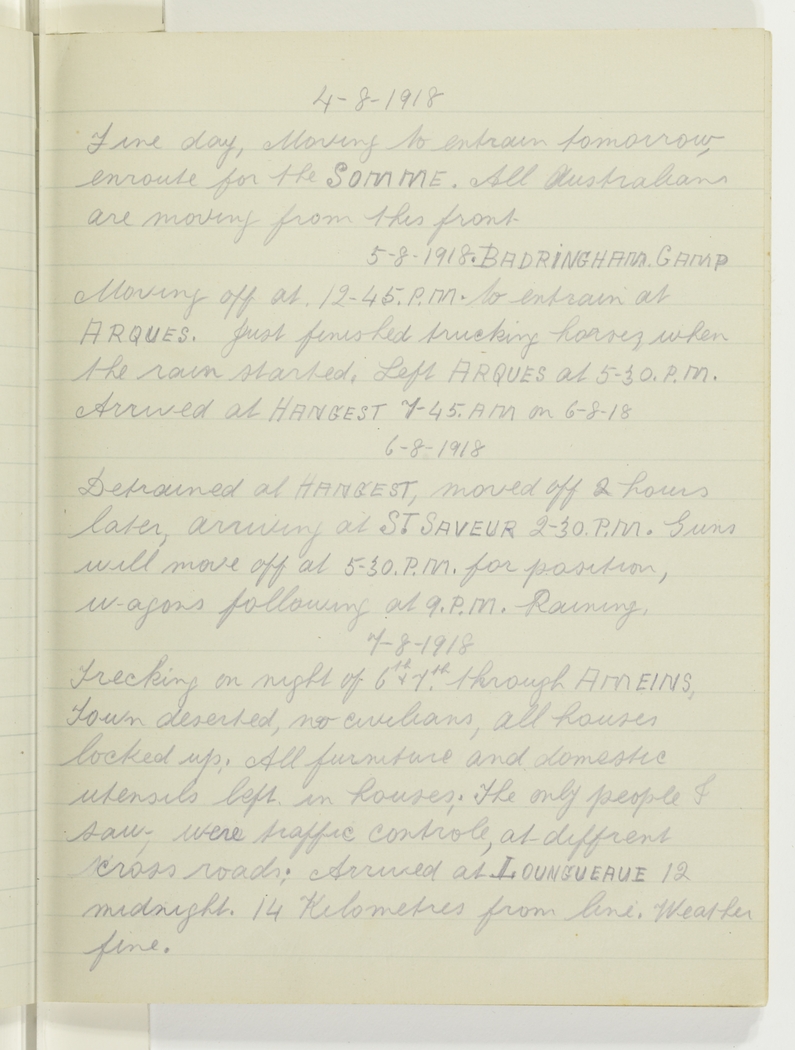 4-8-1918
Fine day, Moving to entrain tomorrow,
enroute for the SOMME. All Australians
are moving from this front
5-8-1918. BADRINGHAM. CAMP
Moving off at 12-45. P.M. to entrain at
ARQUES. Just finished trucking horses, when
the rain started. Left ARQUES at 5-30. P.M.
Arrived at HANGEST 7-45. AM on 6-8-18
6-8-1918
Detrained at HANGEST, moved off 2 hours
later, arriving at ST SAVEUR 2-30. P.M. Guns
will move off at 5-30. P.M. for position,
w-agons following at 9. P.M. Raining.
7-8-1918
Trecking on night of 6th & 7th. through AMEINS,
Town deserted, no civilians, all houses
locked up. All furniture and domestic
utensils left in houses. The only people I
saw, were traffic controle, at diffrent
cross roads. Arrived at LOUNGUEAUE 12
midnight. 14 Kilometres from line. Weather
fine.